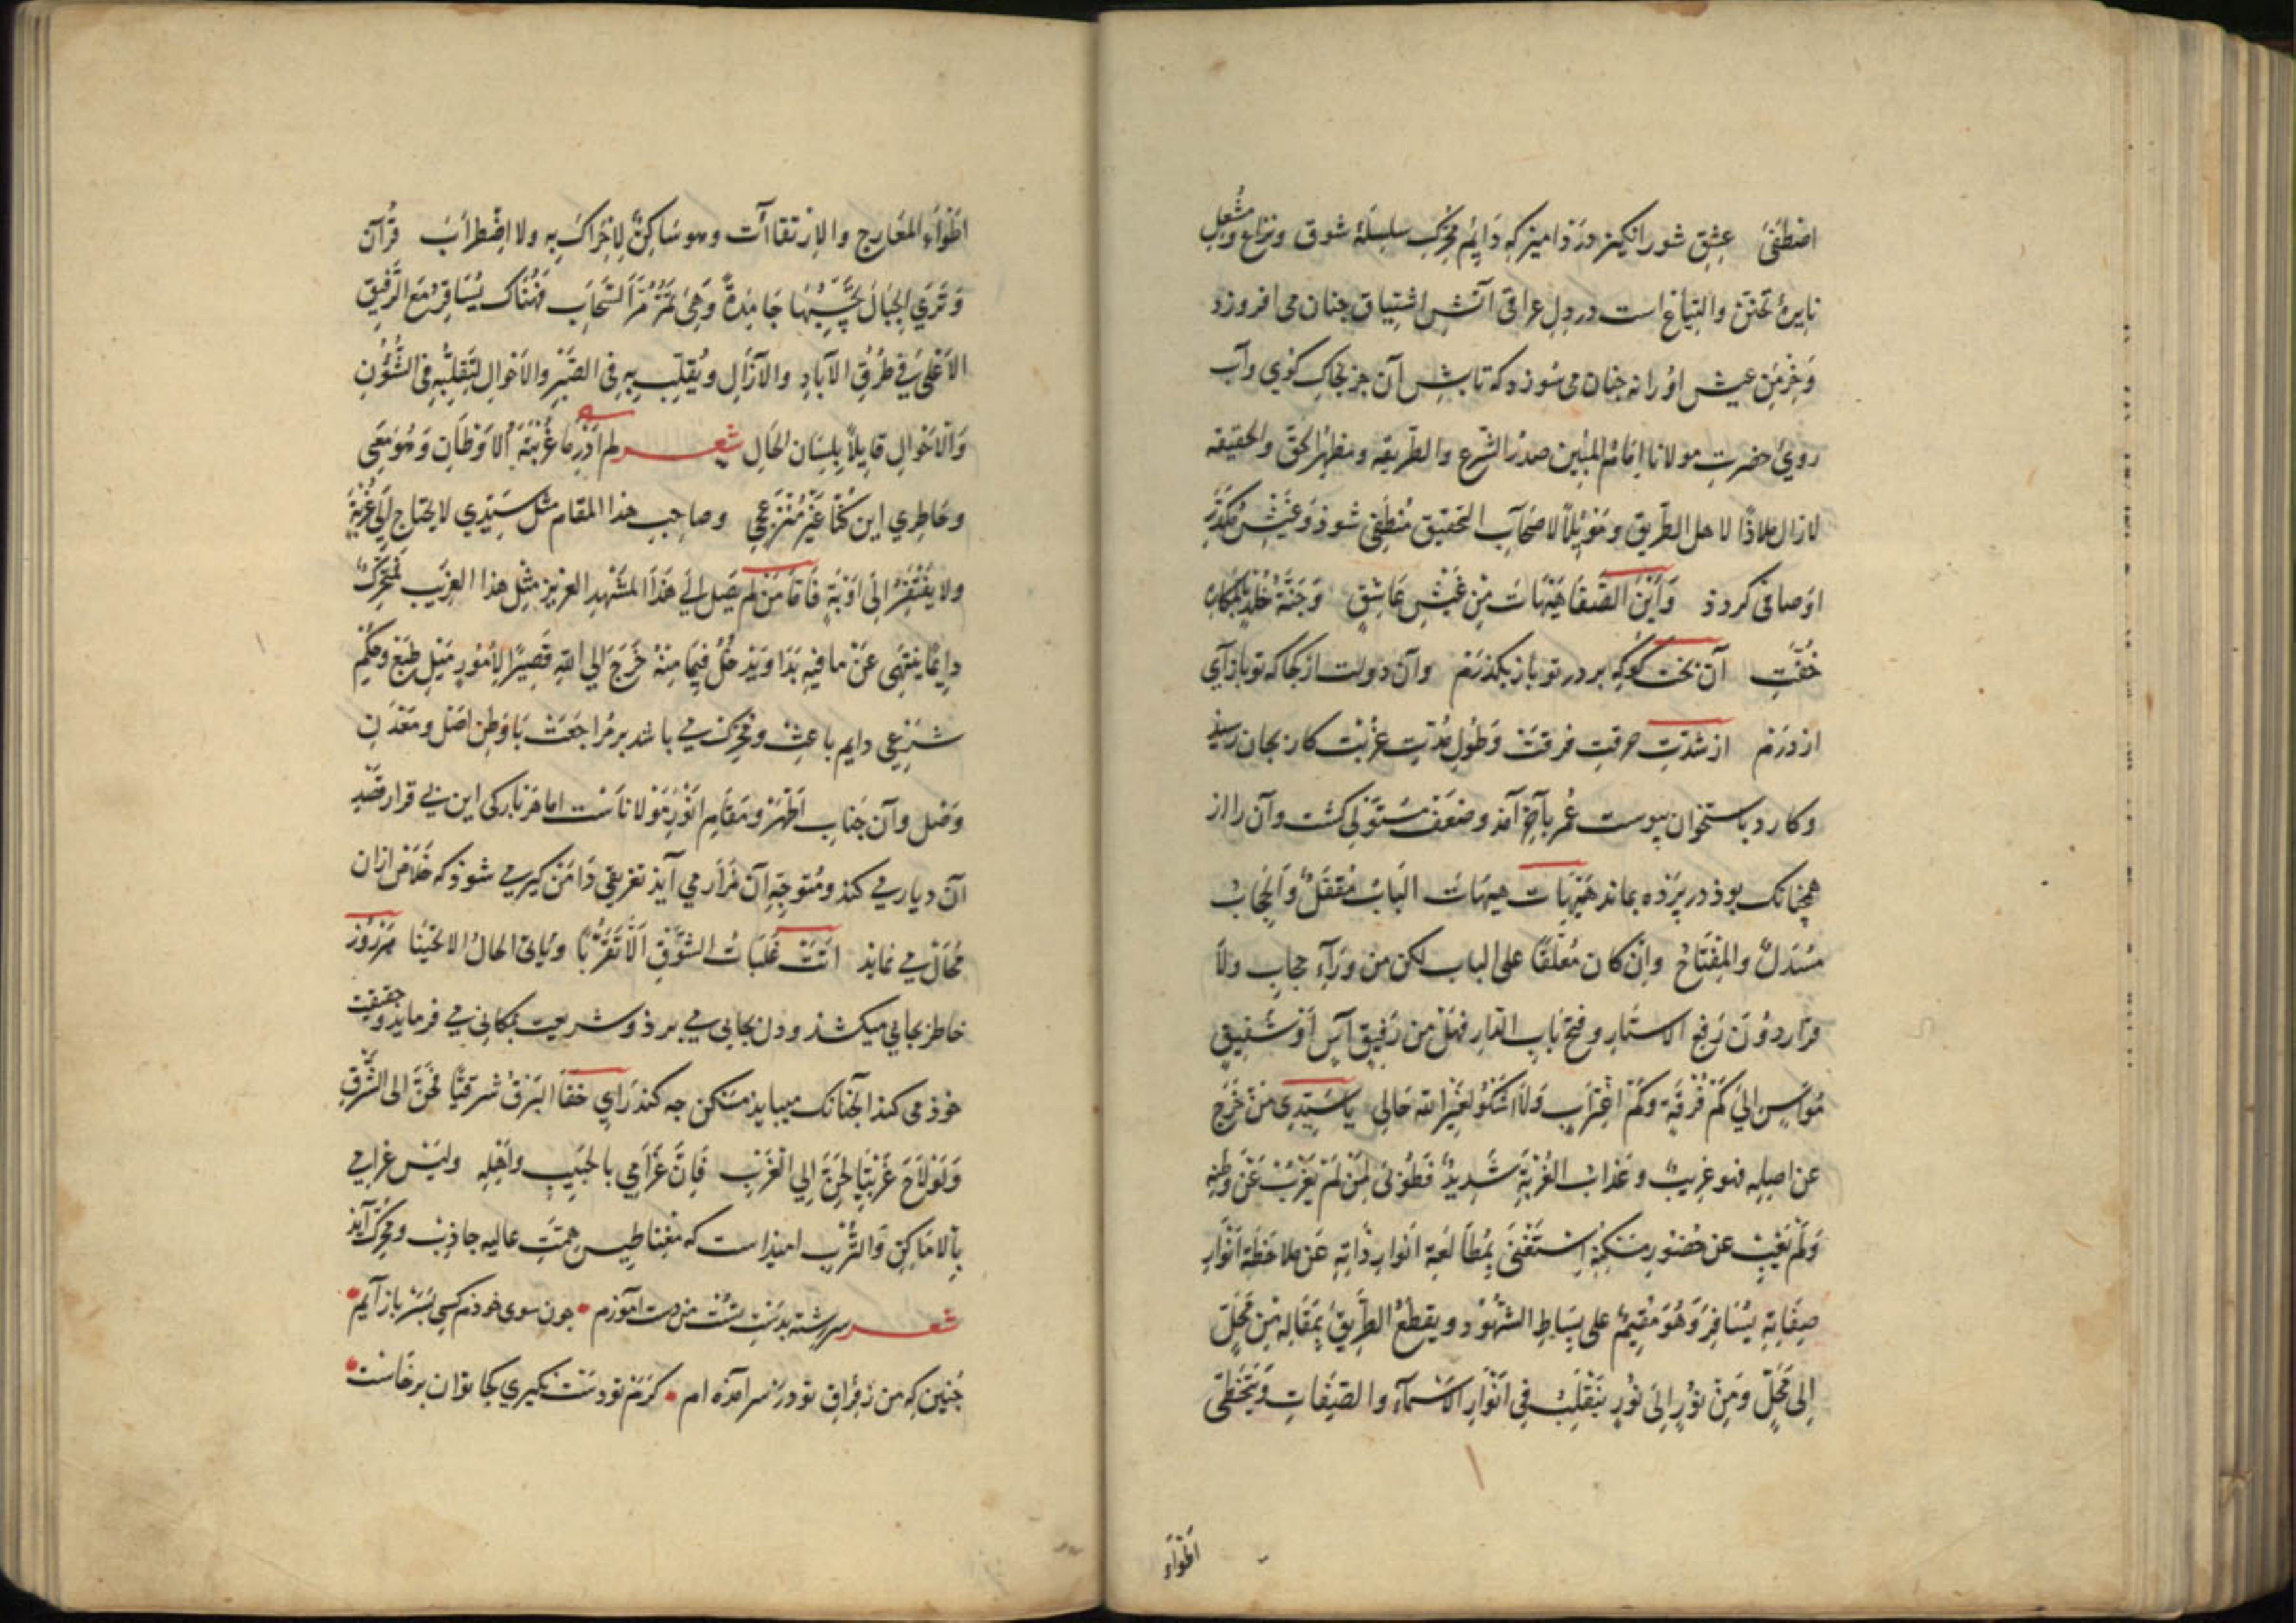 اصْطَفىٰ عِشِق شور انكيز درد اميز كه دَايِم مُحَرِّكِ سِلسِلَۀ شوق ونزاع ومُشعِلِ
نايرۀ تحنّن والتياع است در دِلِ عراقى آتشِ اشتياق جنان مى افروزد
وَخِرمَنِ عيش اوُ را نه جنان مى سُوزد كه تابشِ آن جز بخاكِ كوُي وآبِ
روىِ حضرتِ مولانا اِمَامُ المُبين صدرُ الشَّرع والطّريقه ومَظهرُ الحقّ والحقيقه
لازال مَلاذًا لاهل الطّريق ومَوْئِلاً لاصْحَابِ التحقيق مُنطفِى شودْ وَعَيْشِ مُكَدَّرِ
اوُ صافى كردد وَأَيْنَ الصَّفا هَيْهَاتَ مِنْ عَيْشِ عَاشِقٍ وَجَنَّةُ خُلْدٍ بِالمَكَارِهِ
حُفَّتِ آن بخت كوُ كه بر در تو باز بكذرَم وآن دولت از كجا كه تو باز آى
از درَم از شدّتِ حرقتِ فرقتْ وَطُولِ مُدّتِ غربتْ كار بجان رسيد
وكارد باستخوان پيوست عُمر بآخِر آمد وضعف مستولى كشت وآن راز
همچنانك بوذ در پرَده بماند هَيْهَاتَ هيهَاتَ البَابُ مُقفَلٌ وَالحِجَابُ
مُسْدَلٌ والمِفْتَاحُ وَإنْ كان مُعلّقًا على الباب لكن من ورَآءِ حجابِ ولا
قرار دوُنَ رَفعِ الاستارِ وفتحِ بَابِ الدّارِ فهَلْ من رَفِيقٍ آسٍ أَوْ شَفِيقٍ
مُوَاسٍ الىٰ كَمْ فُرْقَةٍ وَكَمْ اغتِرَابٍ وَلاَ اشْكُوُ لغَيْرِ اللهِ حَالِى يا سَيّدِى مَنْ خَرَجَ
عن اصلِه فهو غريبٌ وعَذابُ الغُرْبَةِ شَدِيدٌ فَطُوبىٰ لِمَنْ لَمْ يَغْرُبْ عَنْ وَطنِهِ
وَلَمْ يَغِبْ عن حُضُورِ مسْكنِهِ اِسْتَغنىٰ بِمُطَالَعةِ انوارِ ذَاتِهِ عَن مُلاحَظةِ انْوَارِ
صِفَاتِهِ يُسَافِرُ وَهُوَ مُقِيمٌ على بِسَاطِ الشُهُوُد ويقطَعُ الطَّرِيقَ بِمَقَالهِ مِن مَحَلٍّ
اِلى مَحَلٍّ وَمِنْ نوُرٍ اِلىٰ نُورٍ يَتقلّبُ فى انْوَارِ الاسْمَآءِ والصِّفَاتِ وَيَتخَطّى
اَطْوَآءَ
اَطْوَآءَ المعَارِج والاِرتقاآت وهو سَاكِنٌ لاحَرَاكَ بِهِ ولا اضْطرَابَ قُرآن
وَتَرَي الجِبَالَ تَحْسَبُهَا جَامِدَةً وَهِىَ تَمُرُّ مَرَّ السَّحَابِ فهُنَاك يُسَافِرُ مَعَ الرَّفيقِ
الاَعْلىٰ فى طُرُقِ الآبادِ والآزَالِ ويُقلّب بِهِ فى الصِّبْرِ والاَحْوَالِ لتَقلُّبِهِ فى الشُّؤُنِ
وَالاَحْوَالِ قايلاً بِلِسَان الحَالِ شعـــر لم اَدْرِ مَا غُرْبَةُ الاَوْطَانِ وَهُوَ مَعِى
وخَاطِرِي اين كُنّا غَيْرُ مُنْزَعِجِ وصاحِب هذا المقام مثل سَيّدِي لا يحتاج الىٰ غُرْبَةٍ
ولا يَفْتَقِرُ الىَ اَوْبَةٍ فَامَّا مَنْ لَمْ يَصِل الىٰ هَذَا المَشْهدِ العزيز مِثلِ هذا الغرِيب فمُتحَرِّكٌ
دايمًا يَنتهى عَنْ ما فيهِ بَدَا وَيَدخُلُ فِيمَا مِنْهُ خَرَجَ الي اللهِ تَصِيرُ الاُمُوُر مَيْلِ طبعْ وحُكمِ
شرعِى دايم باعِث ومُحرّك مى باشد بر مُراجعَتْ بَا وَطنِ اصل ومَعدَنِ
وصل وآن جَنابِ اَطْهَرْ ومَقامِ اَنوَرِ مَوْلاناست اما هَر بَار كى اين بى قرار قصْدِ
آن ديار مى كند ومُتوجّهِ آن مَزَار مى آيد تعويقى دَامَنْ كير مى شوذ كه خَلاص ازان
مُحَالْ مى نمايد اَبَتْ غَلَبَاتُ الشوْقِ اِلاّ تَقَرُّبًا وَيَابى الحالُ الا تحيّنا هَر رُوز
خاطر بجايى ميكشذ ودل بجايى مى برد وشريعت بمكانى مى فرمايذ وحقيقت
خوذ مى كند آنجنانك ميبايد مسكين جه كند رَاىِ خفَا البَرْقُ شرقيًّا فحَنَّ الى الشَّرْقِ
وَلَوْلاَحَ غَرْبيًّا لحَنَّ اِلي الْغَرْبِ فَاِنَّ غَرَامِي بالحَبيبِ واَهْلِهِ وليْسَ غَرامى
بِالاَمَاكِنِ وَالتُّرْبِ اميذ است كه مِغناطيسِ همّتِ عاليه جاذِبْ ومُحرّك آيذ
شعـــر سر رشته بدَستِ تُسْت من دست اموُزم • جون سوى خوذم كشى بسر باز آيم •
جُنِين كه من زفِرَاقِ تو در سر امَذَه ام • كَرَم تو دست نكيرى كجا توان برخَاست •